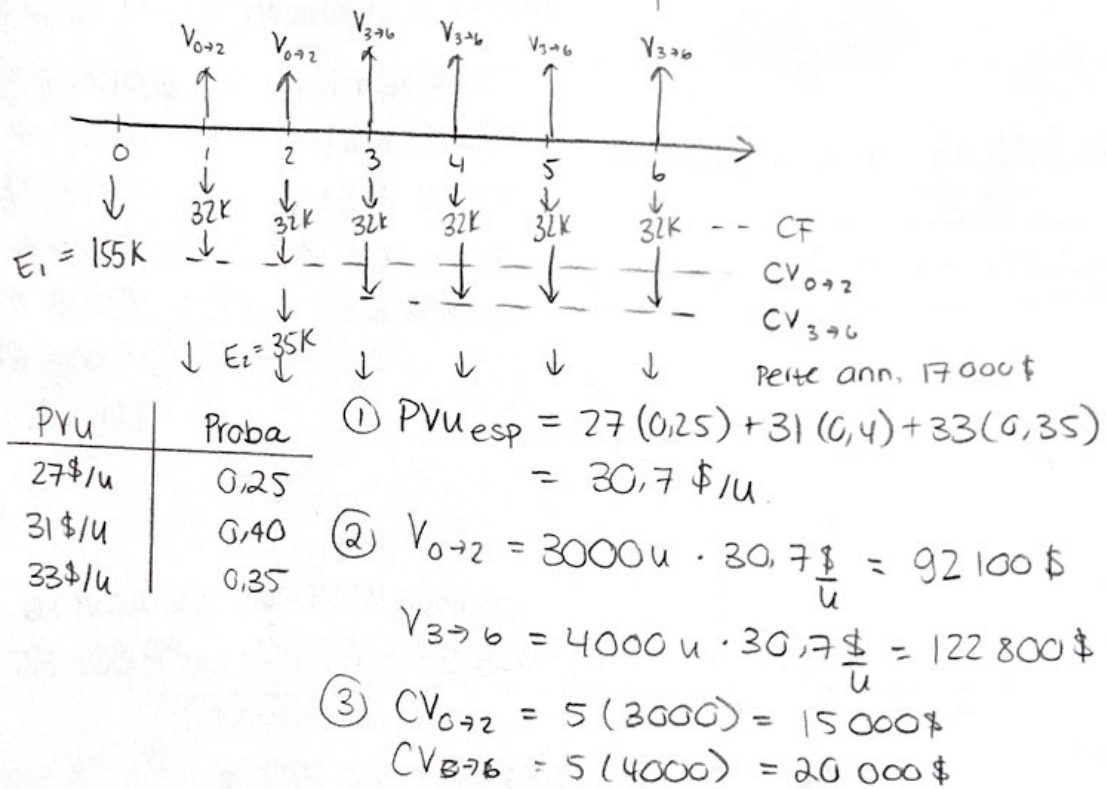 V0→2 V0→2 V3→6 V3→6 V3→6 V3→6
0 1 2 3 4 5 6
32K 32K 32K 32K 32K 32K -- CF
E1 = 155K
CV0→2
CV3→6
E2 = 35K
Perte ann. 17000$
PVu Proba
27$/u 0,25
31$/u 0,40
33$/u 0,35
① PVu esp = 27(0,25)+31(0,4)+33(0,35)
= 30,7 $/u
② V0→2 = 3000u · 30,7 $/u = 92 100$
V3→6 = 4000 u · 30,7 $/u = 122 800$
③ CV0→2 = 5(3000) = 15 000$
CV3→6 = 5(4000) = 20 000$